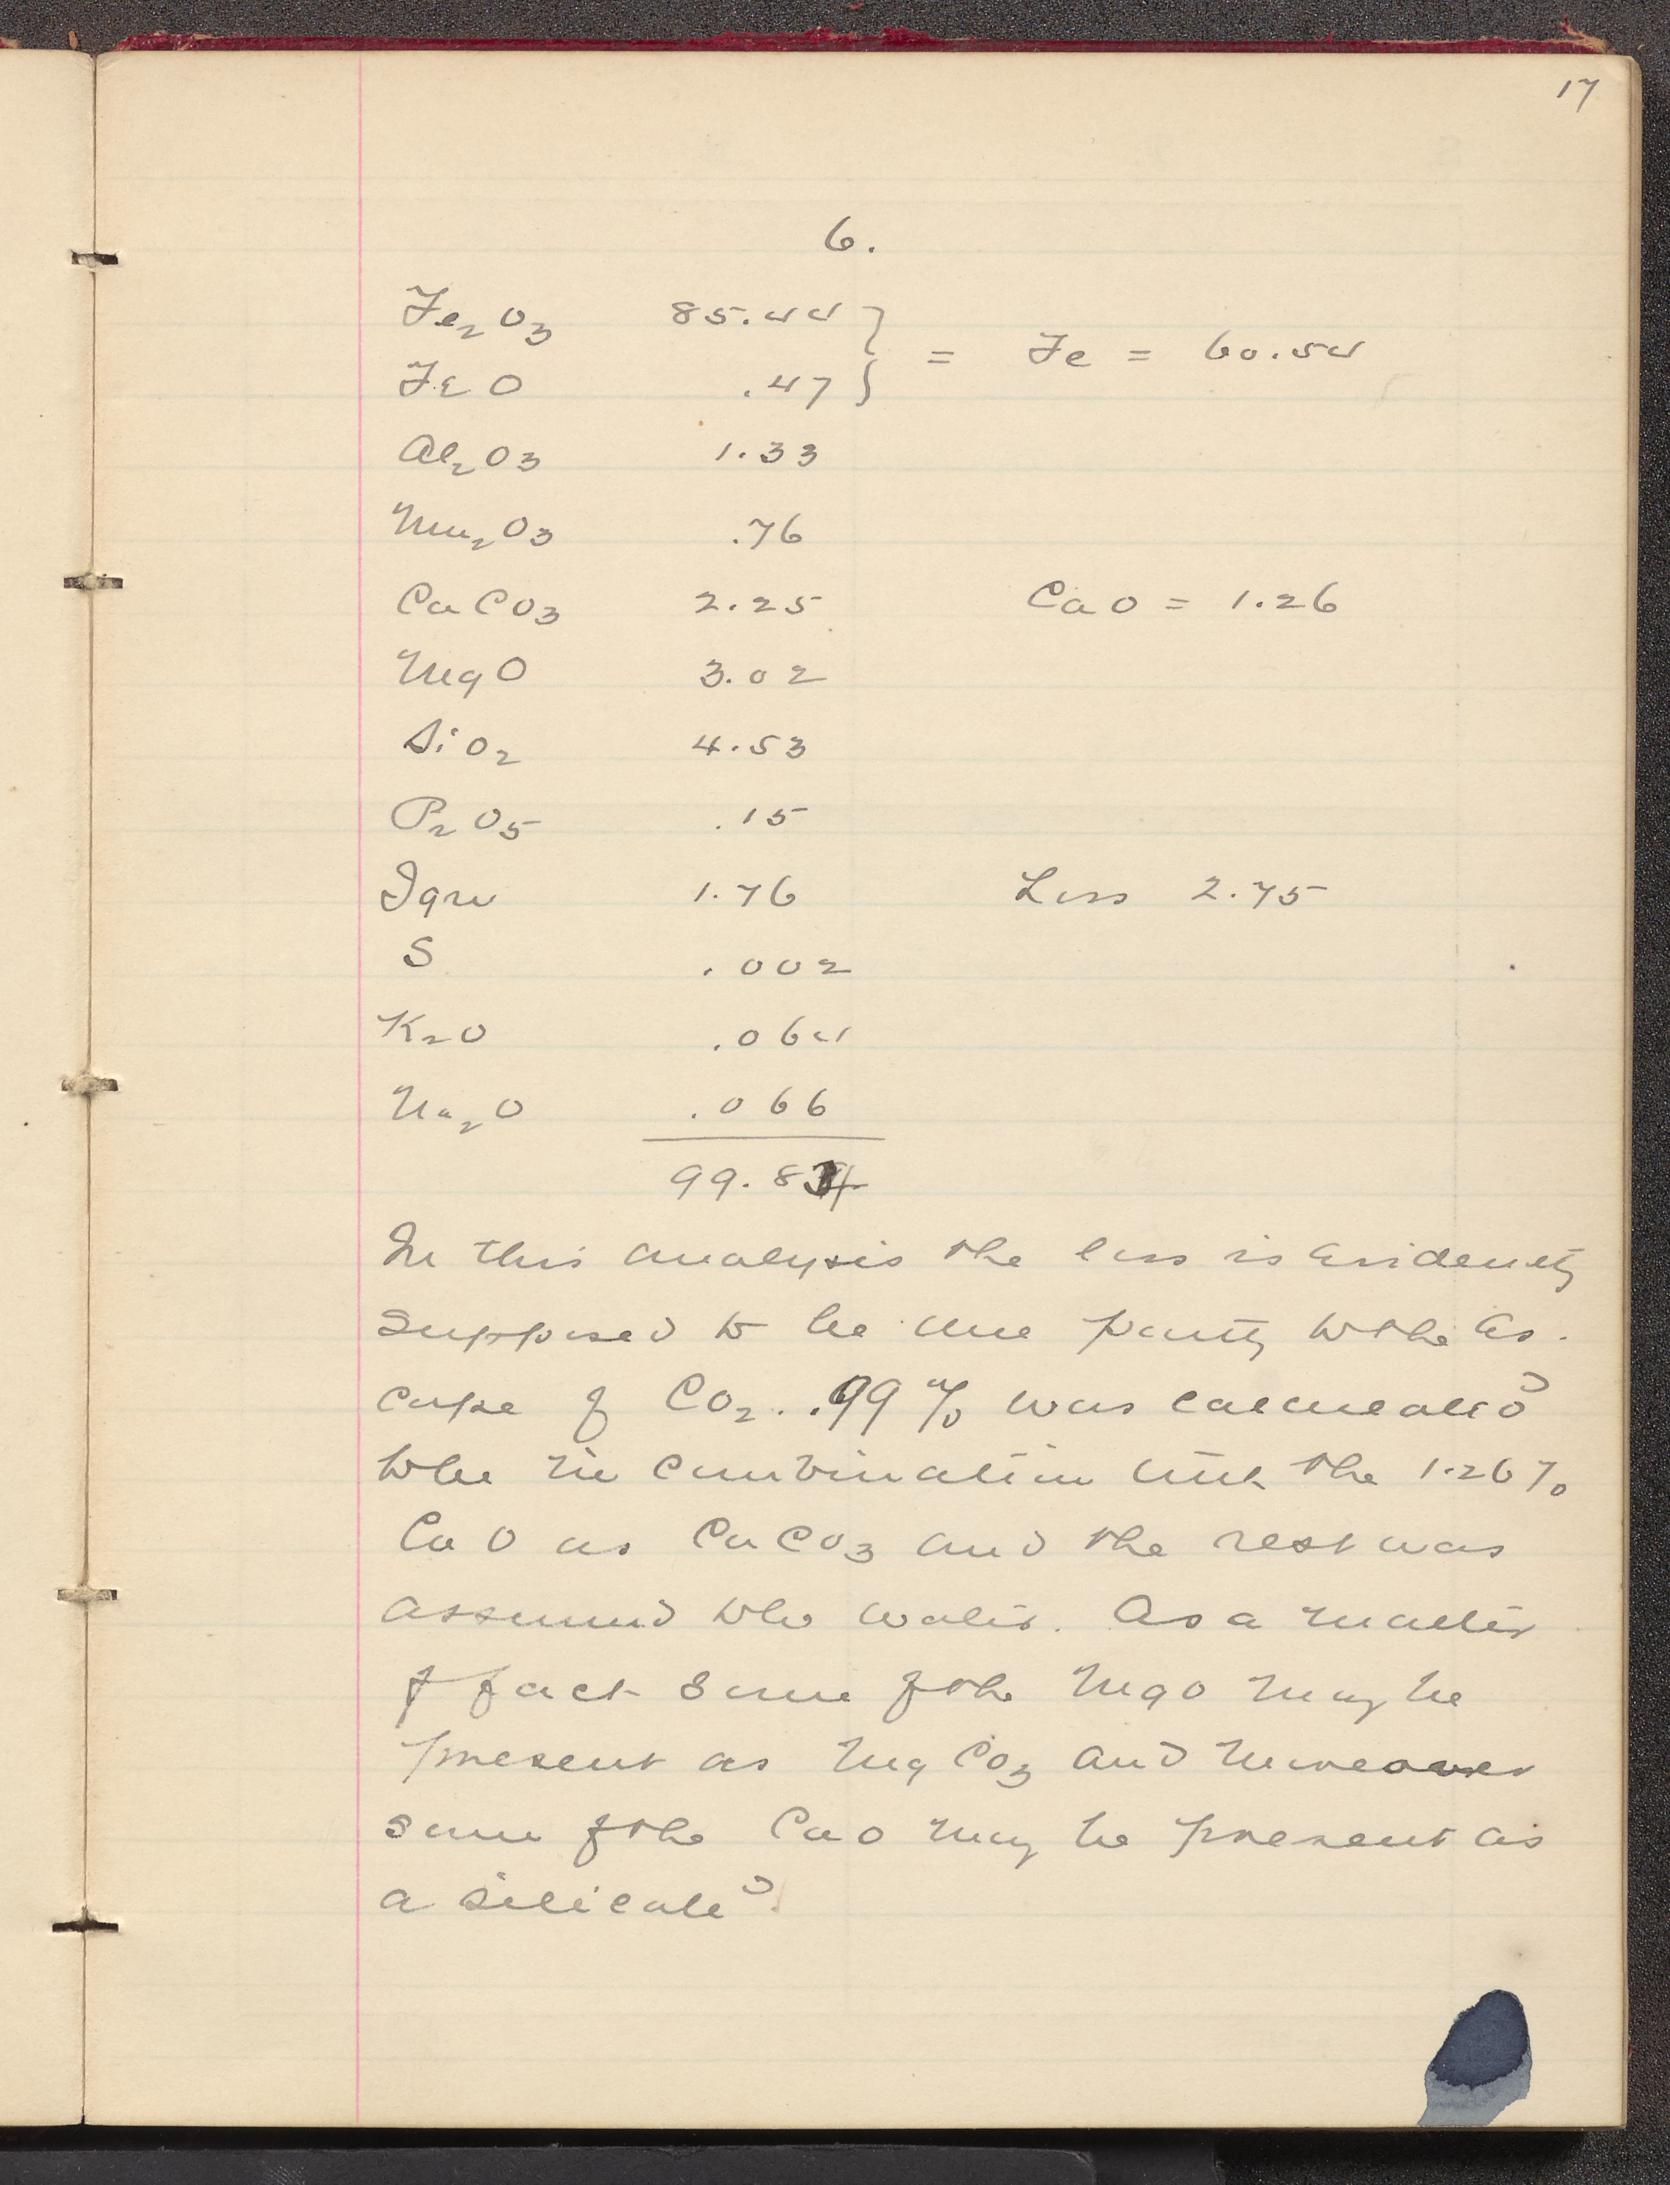 17
6.
Fe2O3 85.44 } = Fe = 60.54
FeO .47
Al2O3 1.33
Mn2O3 .76
CaCO3 2.25 CaO = 1.26
MgO 3.02
SiO2 4.53
P2O5 .15
Ign 1.76 Loss 2.75
S .002
K2O .064
Na2O .066
99.84
In this analysis the loss is evidently
supposed to be due partly to the es-
cape of CO2. .99% was calculated
to be in combination with the 1.26%
CaO as CaCO3 and the rest was
assumed to be water. As a matter
of fact some of the MgO may be
present as MgCO3 and moreover
some of the CaO may be present as
a silicate.